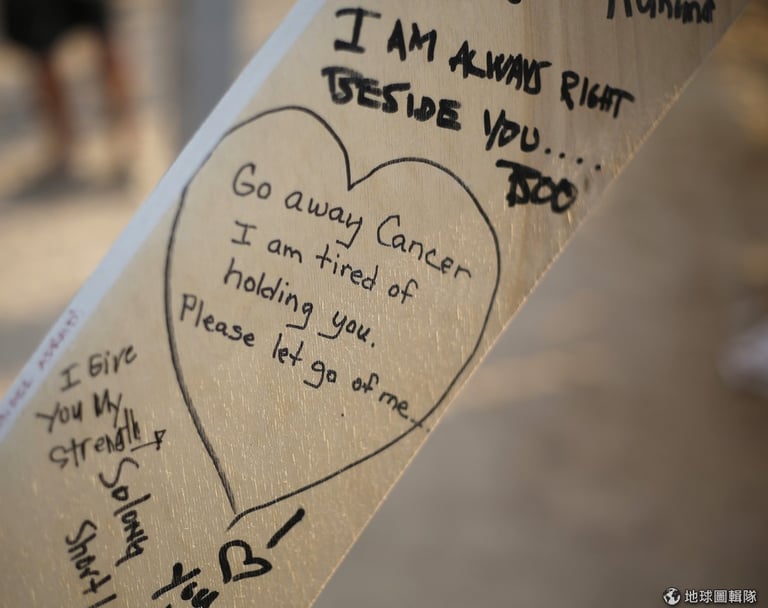 I AM ALWAYS RIGHT
BESIDE YOU....
BOO
Go away Cancer
I am tired of
holding you.
Please let go of me...
I Give
You My
Strength
So long
Short
You
地球圖輯隊